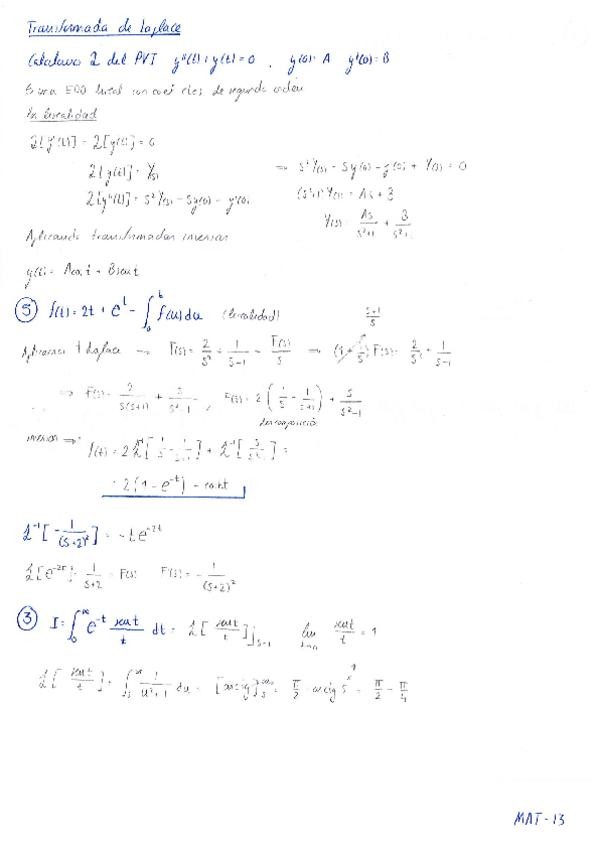 Transformada de Laplace
Calculamos L del PVI y''(t) + y(t) = 0 , y(0) = A y'(0) = B
Es una EDO lineal con coef ctes de segundo orden
Por linealidad
L[y''(t)] + L[y(t)] = 0
L[y(t)] = Y(s) ⇒ s² Y(s) - sy(0) - y'(0) + Y(s) = 0
L[y''(t)] = s² Y(s) - sy(0) - y'(0) (s²+1) Y(s) = As + B
Y(s) = As/(s²+1) + B/(s²+1)
Aplicando transformadas inversas
y(t) = A cos t + B sen t
⑤ f(t) = 2t + e^t - ∫₀^t f(u) du (linealidad) (s+1)/s
Aplicamos t Laplace → F(s) = 2/s² + 1/(s-1) - F(s)/s ⇒ (1 + 1/s) F(s) = 2/s² + 1/(s-1)
⇒ F(s) = 2/(s(s+1)) + s/(s²-1) , F(s) = 2(1/s - 1/(s+1)) + s/(s²-1)
descomposición
inversa ⇒ f(t) = 2L⁻¹[1/s - 1/(s+1)] + L⁻¹[s/(s²-1)] =
= 2(1 - e^-t) - cos t
L⁻¹[-1/(s+2)²] = -te^-2t
L[e^-2t] = 1/(s+2) = F(s) F'(s) = -1/(s+2)²
③ I = ∫₀^∞ e^-t sen t/t dt = L[sen t/t]_s=1 lim t→0 sen t/t = 1
L[sen t/t] = ∫_s^∞ 1/(u²+1) du = [arctg]_s^∞ = π/2 - arctg s = π/2 - π/4
1
MAT-13